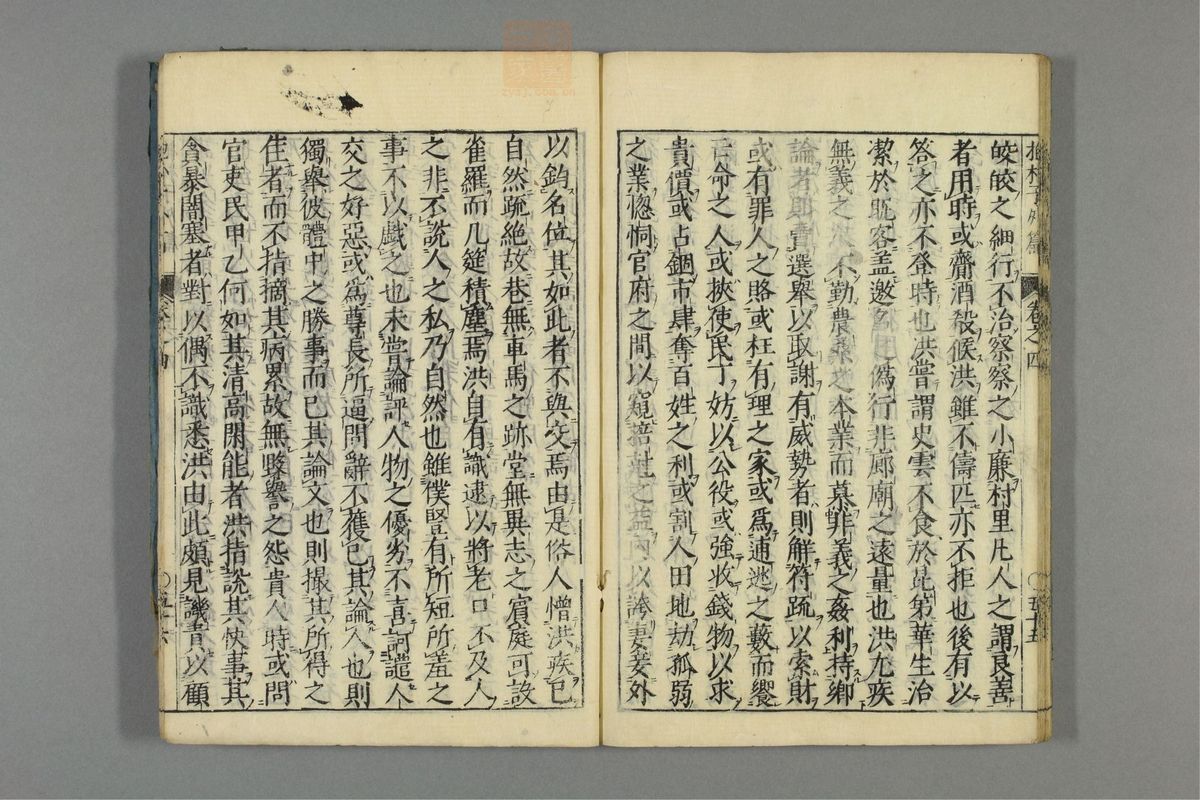 皎皎之細行不治察察之小廉村里凡人之謂良善
者用時或齎酒殺候洪雖不儔匹亦不拒也後有以
答之亦不登時也洪嘗謂史雲不食於昆弟華生治
潔於昵客盖邀名之僞行非廊廟之遠量也洪尤疾
無義之人不勤農桑之本業而慕非義之姦利持鄉
論者則賣選舉以取謝有威勢者則解符疏以索財
或有罪人之賂或枉有理之家或爲逋逃之藪而饗
亡命之人或挾使民丁妨以公役或強收錢物以求
貴價或占錮市肆奪百姓之利或割人田地劫孤弱
之業惚恫官府之間以窺掊尅之益內以誇妻妾外
以釣名位其如此者不與交焉由是俗人憎洪疾已
自然疏絶故巷無車馬之跡堂無異志之賓庭可設
雀羅而几筵積塵焉洪自有識逮以將老口不及人
之非不說人之私乃自然也雖僕豎有所短所羞之
事不以戲之也未嘗論評人物之優劣不喜訶譴人
交之好惡或爲尊長所逼問辭不獲已其論人也則
獨舉彼體中之勝事而已其論文也則撮其所得之
佳者而不指摘其病累故無毀譽之怨貴人時或問
官吏民甲乙何如其清高閑能者洪指說其快事其
貪暴闇塞者對以偶不識悉洪由此頗見譏責以顧